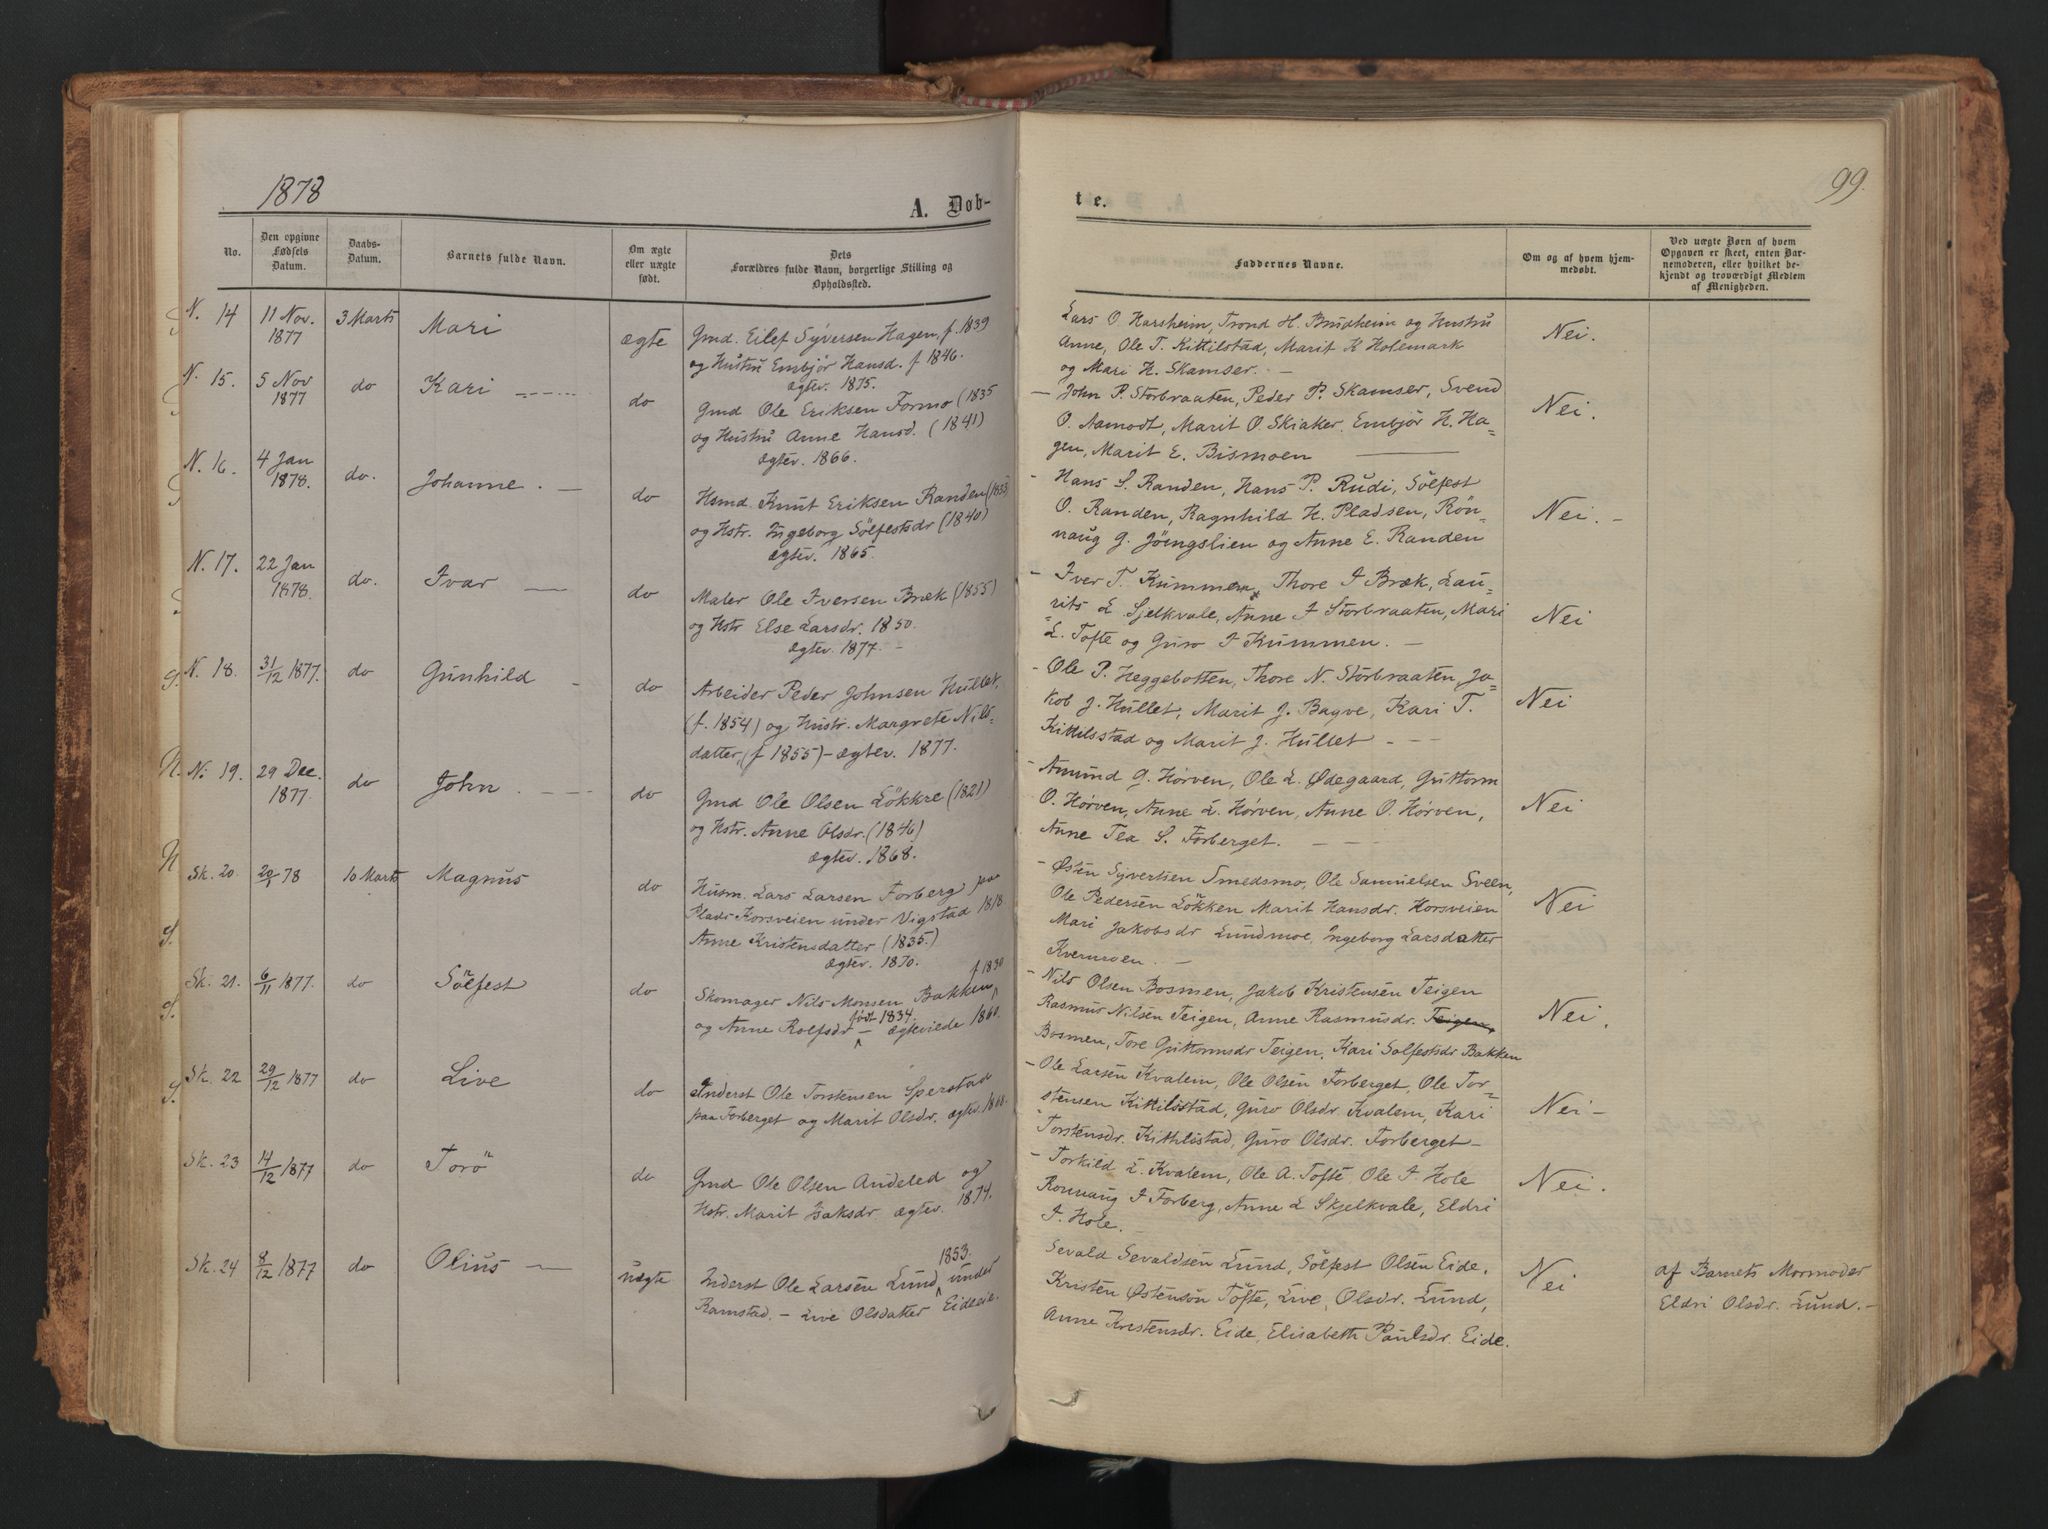 1878
A. Døb-
No.
Den opgivne
Fødsels
Datum.
Daabs-
Datum.
Barnets fulde Navn.
Om ægte
eller uægte
født.
Dets
Forældres fulde Navn, borgerlige Stilling og
Opholdssted.
N. 14
11 Nov.
1877
3 Marts
Mari
ægte
Gmd. Eilef Syversen Hagen, f. 1839
og Hustru Embjør Hansd. f 1846.
ægtev. 1875.
N. 15.
5 Nov
1877
do
Kari
do
Gmd Ole Eriksen Formo (1835
og Hustru Anne Hansd. (1841)
ægtev. 1866.
N. 16.
4 Jan
1878.
do.
Johanne.
do
Hsmd Knut Eriksen Randen (1835)
og Hstr. Ingeborg Sölfestsdr (1840)
ægtev. 1865.
N. 17.
22 Jan
1878.
do.
Ivar
do
Maler Ole Iversen Bræk (1855)
og Hstr Else Larsdr. 1850.
ægtev. 1877. -
N. 18.
31/12 1877.
do
Gunhild
do
Arbeider Peder Johnsen Hullet,
(f. 1854) og Hustr. Margrete Nils-
datter, (f 1855) - ægtev. 1877.
N. 19.
29 Dec.
1877.
do
John
do
Gmd Ole Olsen Lökkre (1821)
og Hstr. Anne Olsdr. (1846)
ægtev. 1868.
Sk. 20
20/1 78
10 Marts
Magnus
do
Husm. Lars Larsen Forberg paa
Plads Korsveien under Vigstad 1818
Anne Kristensdatter (1835.)
ægtev. 1870.
Sk. 21.
6/11 1877.
do
Sölfest
do
f 1830
Skomager Nils Monsen Bakken
født 1834.
og Anne Rolfsdr - ægteviede 1860.
Sk. 22
29/12 1877
do
Live
do
Inderst Ole Torstensen Sperstad
paa Forberget og Marit Olsdr. ægtev. 1868.
Sk. 23
14/12 1877
do
Torö
do
Gmd Ole Olsen Andeled og
Hstr. Marit Isaksdr. ægtev. 1874.
Sk. 24
8/12 1877
do
Olius
uægte
1853.
Inderst Ole Larsen Lund under
Ramstad. - Live Olsdatter Eideeie.
99.
te.
Faddernes Navne.
Om og af hvem hjem-
medøbt.
Ved uægte Børn af hvem
Opgaven er skeet, enten Bar-
nemoderen, eller hvilket be-
kjendt og troværdigt Medlem
af Menigheden.
Lars O. Harsheim, Trond H. Brudheim og Hustru
Anne, Ole T. Kittilstad, Marit K Holemark
og Mari H. Skamser. -
Nei.
- John P. Storbraaten, Peder P. Skamser, Svend
O. Aamodt, Marit O. Skiaker. Embjør H. Ha-
gen, Marit E. Bismoen
Nei.
- Hans S. Randen, Hans P. Rudi, Sölfest
O. Randen, Ragnhild H. Pladsen, Rön-
naug G. Jöingslien og Anne E. Randen
Nei. -
- Iver T. Kummen, Thore I Bræk, Lau-
rits L Sjelkvale, Anne I Storbraaten, Mari
L. Tofte og Guro I Kummen. -
Nei
- Ole P. Heggebotten, Thore N. Storbraaten, Ja-
kob J. Hullet, Marit J. Bagve, Kari T.
Kittilsstad og Marit J. Hullet -
Nei
- Amund G. Hørven, Ole L. Ødegaard, Guttorm
O. Hørven, Anne L. Hørven, Anne O. Hørven,
Anne Tea S. Forberget. -
Nei
- Østen Syvertsen Smedsmo, Ole Samuelsen Sveen,
Ole Pedersen Lökken Marit Hansdr. Horsveien
Mari Jakobsdr Lundmoe, Ingeborg Larsdatter
Kvernroen. -
Nei
- Nils Olsen Bosmen, Jakob Kristensen Teigen
Rasmus Nilsen Teigen, Anne Rasmusdr. Teigen,
Bosmen, Tore Guttormsdr Teigen, Kari Solfestsdr Bakken
Nei.
- Ole Larsen Kvalem, Ole Olsen Forberget, Ole Tor-
stensen Kittilsstad, Guro Olsdr. Kvalem, Kari
Torstensdr. Kittilsstad, Guro Olsdr. Forberget -
Nei -
- Torkild L. Kvalem, Ole A. Tofte, Ole I. Hole
Ronnaug I Forberg, Anne L Skjelkvale, Eldri
I. Hole.
Nei.
Sevald Sevaldsen Lund, Sölfest Olsen Eide.
Kristen Østensøn Tofte, Live, Olsdr. Lund,
Anne Kristensdr. Eide, Elisabeth Paulsdr. Eide.
Nei
af Barnets Mormoder
Eldri Olsdr. Lund. -